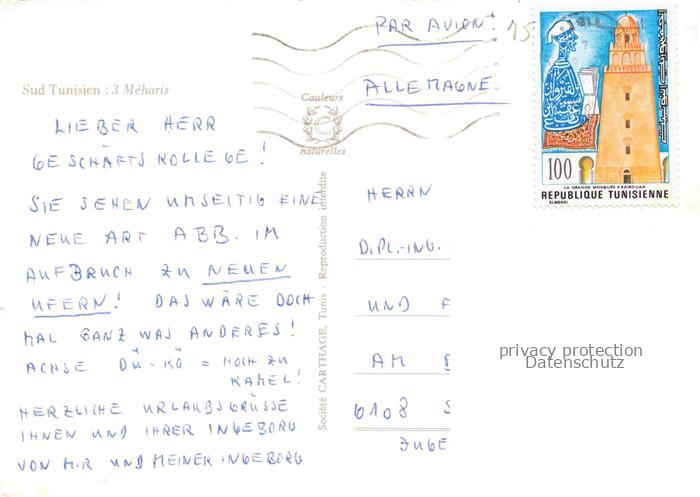 PAR AVION!
ALLEMAGNE
Sud Tunisien : 3 Méharis
Couleurs
naturelles
LIEBER HERR
GESCHÄFTSKOLLEGE!
SIE SEHEN UMSEITIG EINE
NEUE ART ABB. IM
AUFBRUCH ZU NEUEN
UFERN! DAS WÄRE DOCH
MAL GANZ WAS ANDERES!
ACHSE DÜ-KÖ = NOCH ZU
KAMEL!
HERZLICHE URLAUBSGRÜSSE
IHNEN UND IHRER INGEBORG
VON MIR UND MEINER INGEBORG
Société CARTHAGE, Tunis - Reproduction interdite
HERRN
DIPL.-ING.
UND F
AM
6108 S
JUGE
100
LA GRANDE MOSQUEE KAIROUAN
REPUBLIQUE TUNISIENNE
ELMEKKI
الجمهورية التونسية
privacy protection
Datenschutz